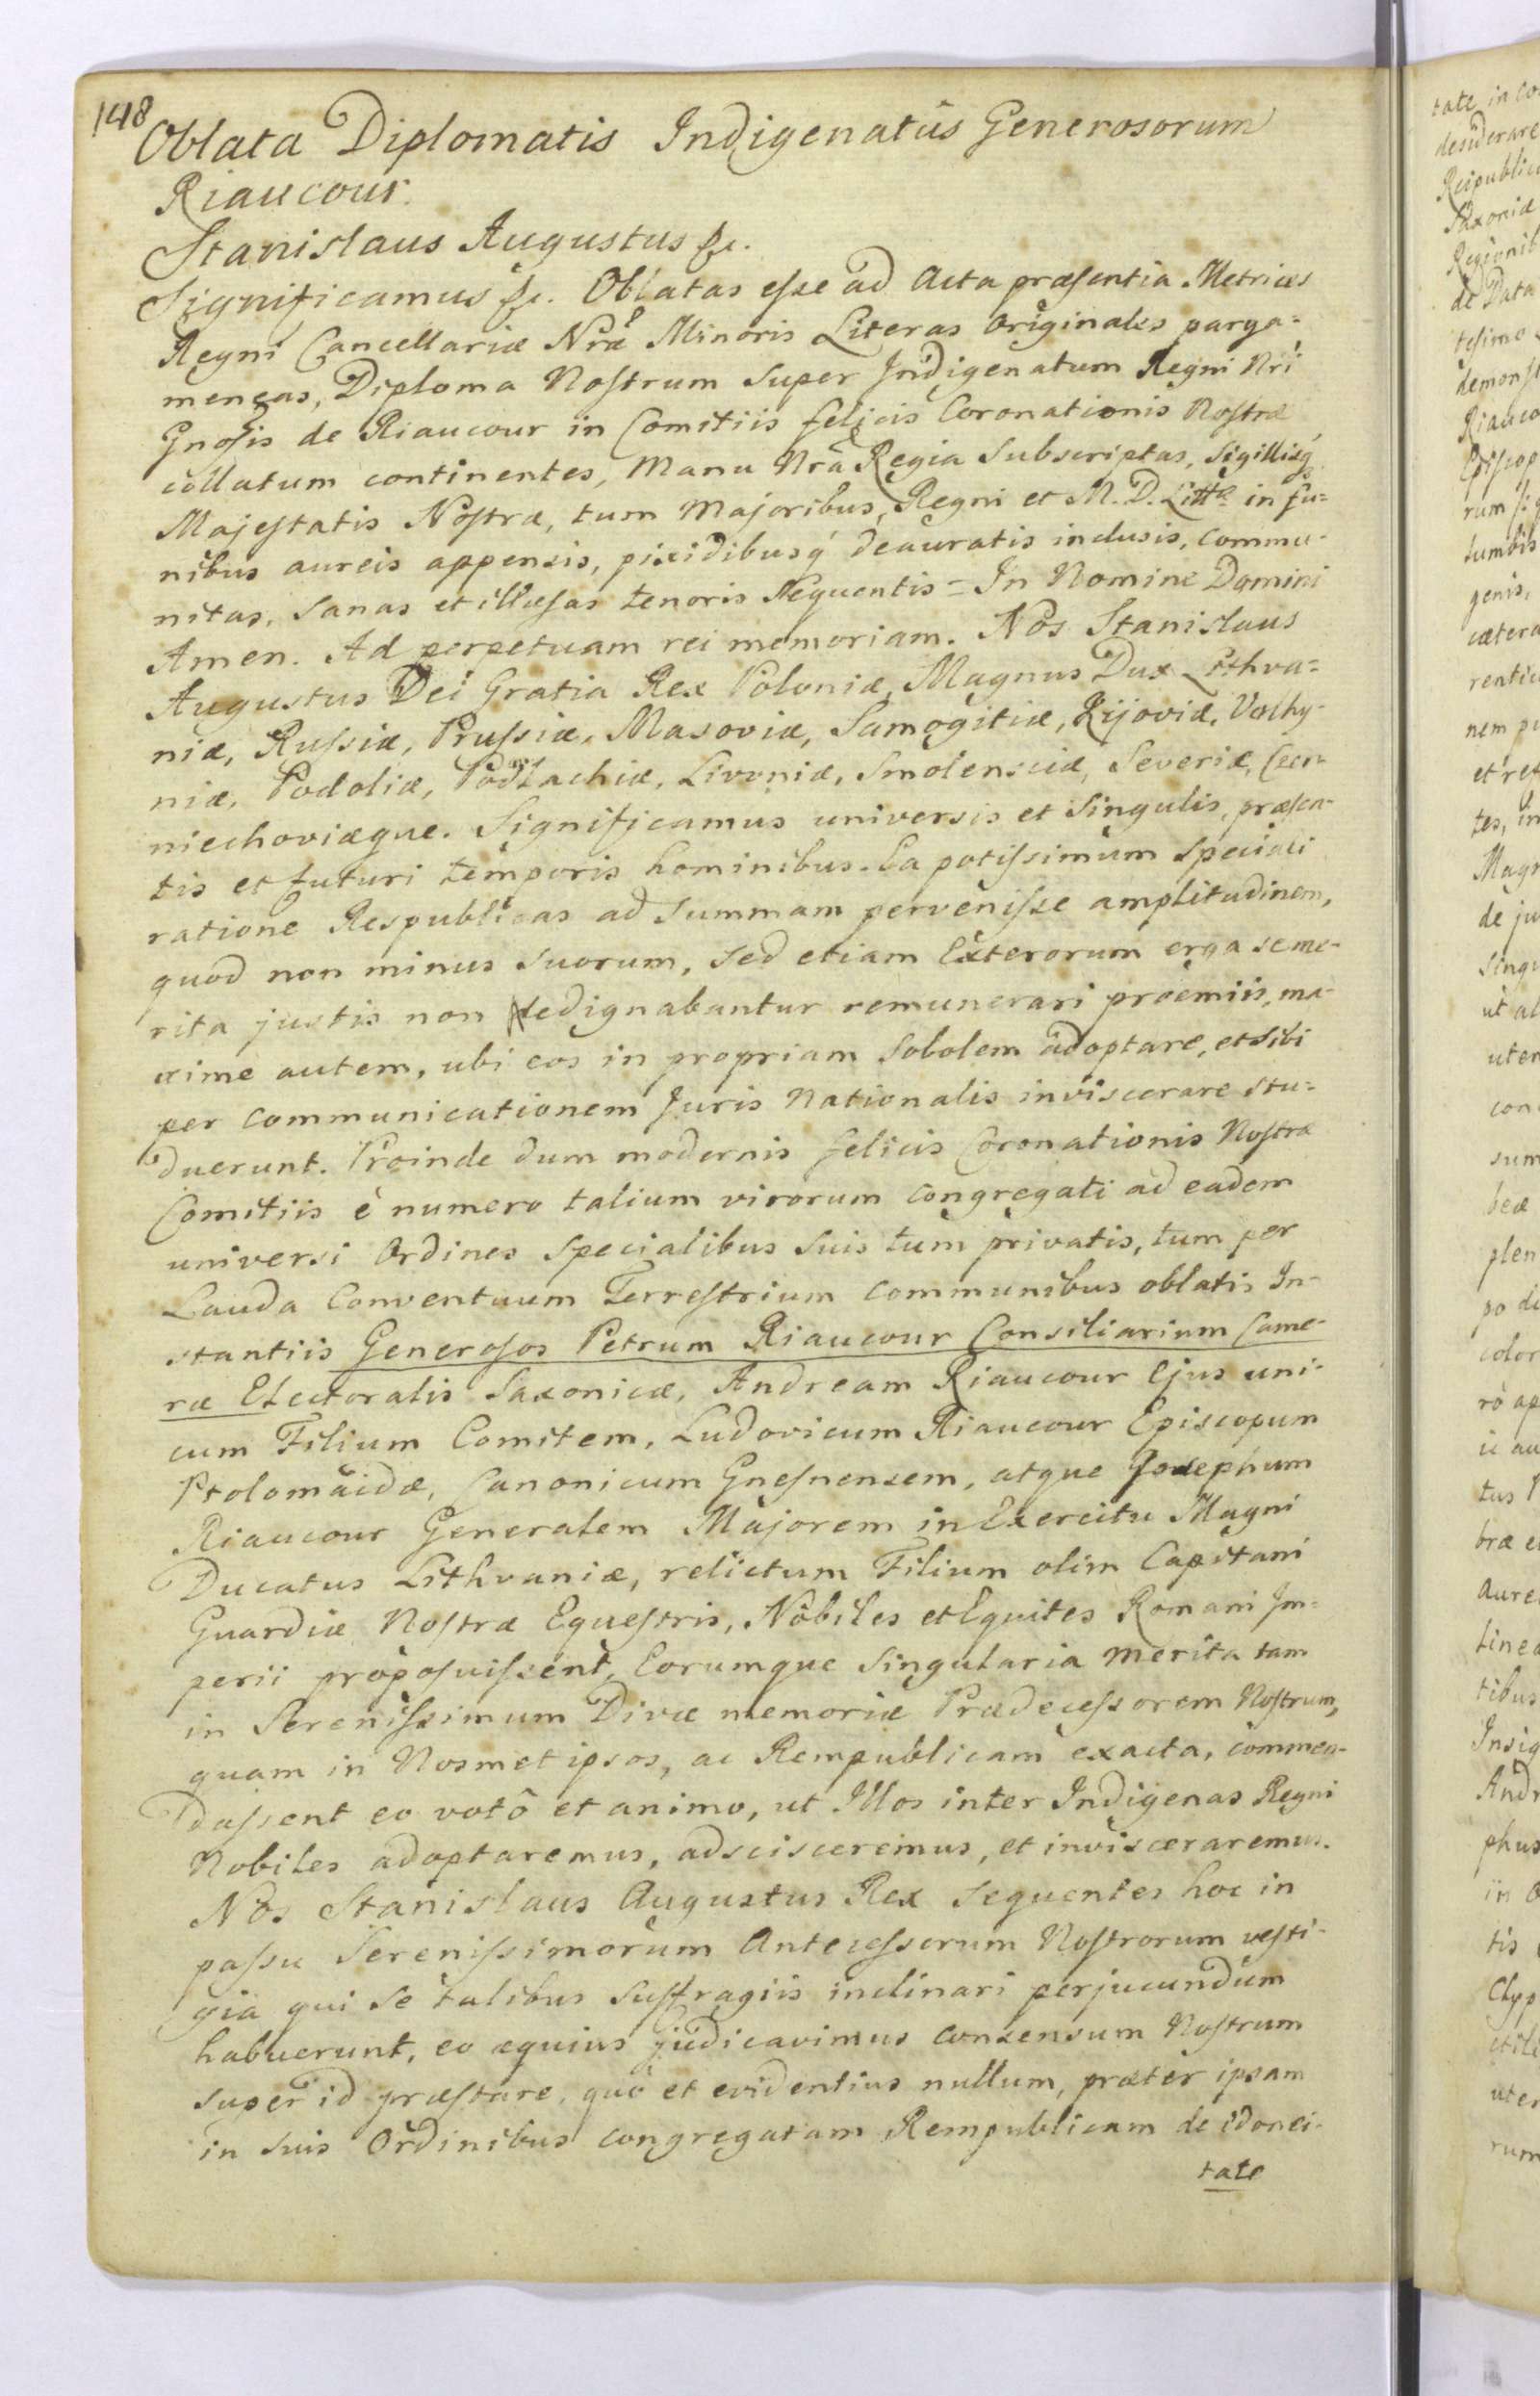 148
Oblata Diplomatis Indigenatûs Generosorum
Riaucour.
Stanislaus Augustus &c.
Significamus &c. Oblatas esse ad Acta præsentia Metrices
Regni Cancellariæ Nræ Minoris Literas Originales parga=
meneas, Diploma Nostrum super Indigenatum Regni Nri
Gnosis de Riaucour in Comitiis felicis Coronationis Nostræ
collatum continentes, Manu Nrâ Regia Subscriptas, Sigillisq́
Majestatis Nostræ, tum Majoribus, Regni et M. D. Littæ in fu=
nibus aureis appensis, pixidibusq́ deauratis inclusis, commu-
nitas, sanas et illæsas tenoris sequentis = In Nomine Domini
Amen. Ad perpetuam rei memoriam. Nos Stanislaus
Augustus Dei Gratia Rex Poloniæ, Magnus Dux Lithva=
niæ, Russiæ, Prussiæ, Masoviæ, Samogitiæ, Kijoviæ, Volhy-
niæ, Podoliæ, Podlachiæ, Livoniæ, Smolensciæ, Severiæ, Czer-
niechoviæque. Significamus universis et singulis, præsen-
tis et futuri temporis hominibus. Ea potissimum speciali
ratione Respublicas ad summam pervenisse amplitudinem,
quod non minus suorum, sed etiam Exterorum erga se me-
rita justis non dedignabantur remunerari proemiis, ma-
xime autem, ubi eos in propriam sobolem adoptare, et sibi
per communicationem Juris Nationalis inviscerare stu-
duerunt. Proinde dum modernis felicis Coronationis Nostræ
Comitiis è numero talium virorum congregati ad eadem
universi Ordines specialibus suis tum privatis, tum per
Lauda Conventuum Terrestrium communibus oblatis In-
stantiis Generosos Petrum Riaucour Consiliarium Came-
ræ Electoralis Saxonicæ, Andream Riaucour Ejus uni-
cum Filium Comitem, Ludovicum Riaucour Episcopum
Ptolomaidæ, Canonicum Gnesnensem, atque Josephum
Riaucour Generalem Majorem in Exercitu Magni
Ducatus Lithvaniæ, relictum Filium olim Capitani
Guardiæ Nostræ Equestris, Nobiles et Equites Romani Im-
perii proposuissent, Eorumque singularia merita tam
in Serenissimum Divæ memoriæ Prædecessorem Nostrum,
quam in Nosmet ipsos, ac Rempublicam exacta, commen-
dassent eo votô et animo, ut Illos inter Indigenas Regni
Nobiles adoptaremus, adscisceremus, et invisceraremus.
Nos Stanislaus Augustus Rex sequentes hoc in
passu Serenissimorum Antecessorum Nostrorum vesti-
gia qui se talibus suffragiis inclinari perjucundum
habuerunt, eo æquius judicavimus consensum Nostrum
super id præstare, quò et evidentius nullum, præter ipsam
in suis Ordinibus congregatam Rempublicam de idonei-
tate